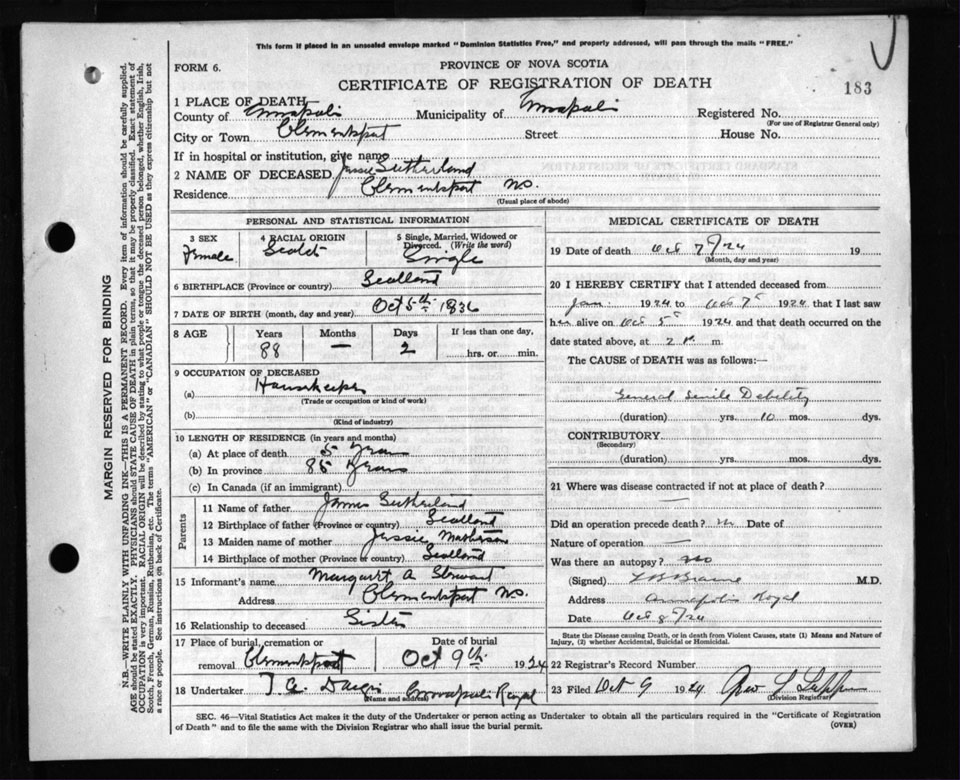 This form if placed in an unsealed envelope marked "Dominion Statistics Free," and properly addressed, will pass through the mails "FREE."
FORM 6.
PROVINCE OF NOVA SCOTIA
CERTIFICATE OF REGISTRATION OF DEATH
183
1 PLACE OF DEATH
County of Annapolis Municipality of Annapolis Registered No.
(For use of Registrar General only)
City or Town Clementsport Street House No.
If in hospital or institution, give name
2 NAME OF DECEASED Jessie Sutherland
Residence Clementsport N.S.
(Usual place of abode)
PERSONAL AND STATISTICAL INFORMATION
3 SEX Female
4 RACIAL ORIGIN Scotch
5 Single, Married, Widowed or Divorced. (Write the word) Single
6 BIRTHPLACE (Province or country) Scotland
7 DATE OF BIRTH (month, day and year) Oct 5th 1836
8 AGE Years Months Days If less than one day,
88 — 2 hrs. or min.
9 OCCUPATION OF DECEASED
(a) Housekeeper
(Trade or occupation or kind of work)
(b)
(Kind of industry)
10 LENGTH OF RESIDENCE (in years and months)
(a) At place of death 5 years
(b) In province 85 years
(c) In Canada (if an immigrant)
Parents
11 Name of father James Sutherland
12 Birthplace of father (Province or country) Scotland
13 Maiden name of mother Jessie Matheson
14 Birthplace of mother (Province or country) Scotland
15 Informant's name Margaret A Stewart
Address Clementsport N.S.
16 Relationship to deceased Sister
17 Place of burial, cremation or removal Clementsport
Date of burial Oct 9th 1924
18 Undertaker Annapolis Royal
(Name and address)
MEDICAL CERTIFICATE OF DEATH
19 Date of death Oct 7/24 19
(Month, day and year)
20 I HEREBY CERTIFY that I attended deceased from
Jan 1924 to Oct 7 1924 that I last saw
her alive on Oct 5 1924 and that death occurred on the
date stated above, at 2 m.
The CAUSE of DEATH was as follows:—
General Senile Debility
(duration) yrs. 10 mos. dys.
CONTRIBUTORY
(Secondary)
(duration) yrs. mos. dys.
21 Where was disease contracted if not at place of death?
—
Did an operation precede death? no Date of
Nature of operation —
Was there an autopsy? no
(Signed) L B Braine M.D.
Address Annapolis Royal
Date Oct 8/24
State the Disease causing Death, or in death from Violent Causes, state (1) Means and Nature of Injury, (2) whether Accidental, Suicidal or Homicidal.
22 Registrar's Record Number
23 Filed Oct 9 1924
(Division Registrar)
SEC. 46—Vital Statistics Act makes it the duty of the Undertaker or person acting as Undertaker to obtain all the particulars required in the "Certificate of Registration
of Death" and to file the same with the Division Registrar who shall issue the burial permit.
(OVER)
MARGIN RESERVED FOR BINDING
N.B.—WRITE PLAINLY WITH UNFADING INK—THIS IS A PERMANENT RECORD. Every item of information should be carefully supplied.
AGE should be stated EXACTLY. PHYSICIANS should STATE CAUSE OF DEATH in plain terms, so that it may be properly classified. Exact statement of
OCCUPATION is very important. RACIAL ORIGIN will be described by stating to what people or tongue the deceased person belonged, whether English, Irish,
Scotch, French, German, Russian, Ruthenian, etc. The terms "AMERICAN" or "CANADIAN" SHOULD NOT BE USED as they express citizenship but not
a race or people. See instructions on back of Certificate.